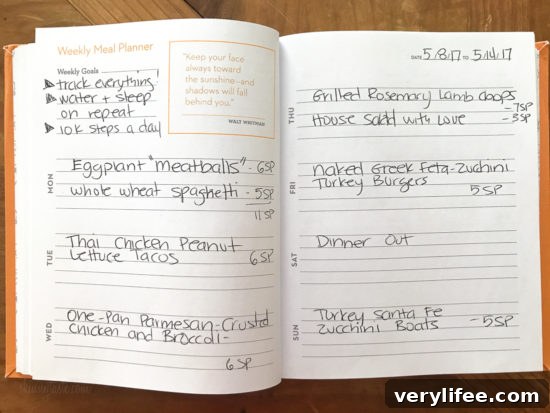 Weekly Meal Planner
Weekly Goals
track everything!
water + sleep
on repeat
10k steps a day
"Keep your face
always toward
the sunshine—and
shadows will fall
behind you."
WALT WHITMAN
MON
Eggplant "meatballs" - 6SP
whole wheat spaghetti - 5SP
11SP
TUE
Thai Chicken Peanut
Lettuce Tacos 6SP
WED
One-Pan Parmesan-Crusted
Chicken and Broccoli-
6SP
DATE 5/8/17 TO 5/14/17
THU
Grilled Rosemary Lamb Chops
-7SP
House Salad with Love -3SP
FRI
Naked Greek Feta-Zucchini
Turkey Burgers 5SP
SAT
Dinner Out
SUN
Turkey Santa Fe
Zucchini Boats -5SP
verylifee.com